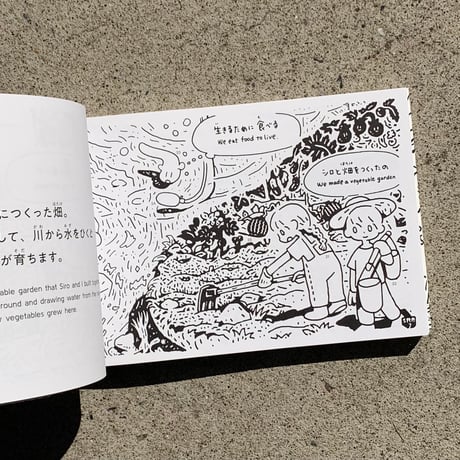 につくった畑。
して、川から水をひくと
が育ちます。
able garden that Siro and I built
round and drawing water from the
r vegetables grew here.
生きるために 食べる
We eat food to live.
シロと畑をつくったの
We made a vegetable garden